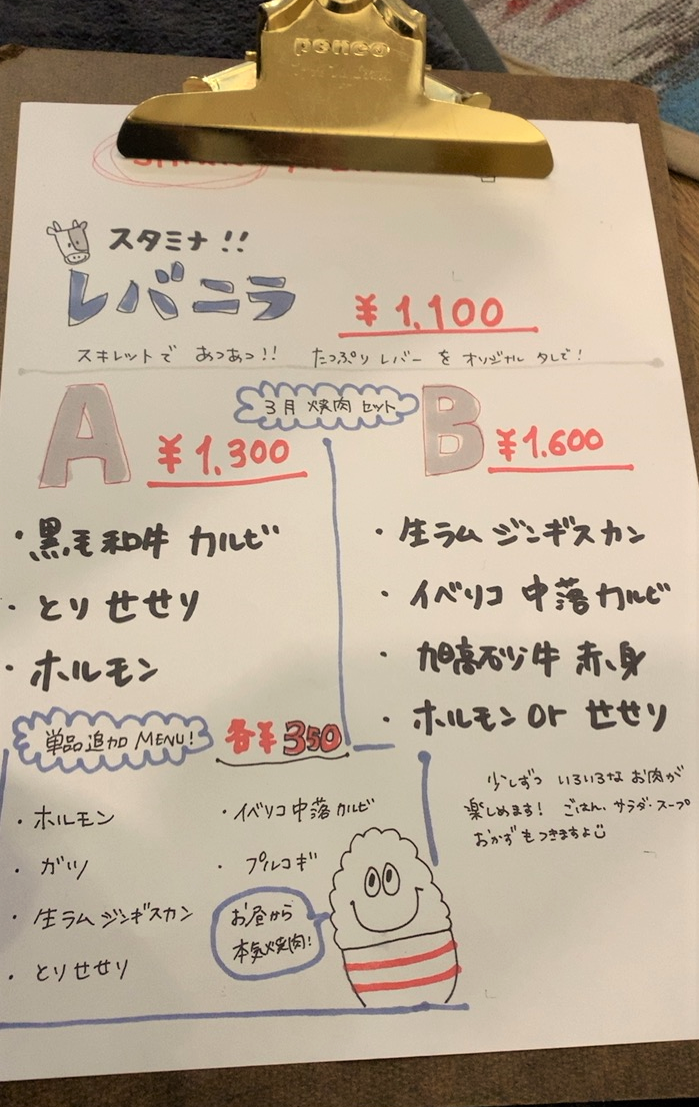 penco
スタミナ!!
レバニラ
¥1,100
スキレットで あつあつ!! たっぷり レバー を オリジナル タレで!
3月 焼肉 セット
A
¥1,300
・黒毛和牛 カルビ
・とり せせり
・ホルモン
B
¥1.600
・生ラム ジンギスカン
・イベリコ 中落カルビ
・牛 赤身
・ホルモン or せせり
少しずつ いろいろな お肉が
楽しめます! ごはん、サラダ・スープ
おかず もつきますよ
単品追加 MENU!
各¥350
・ホルモン
・ガツ
・生ラム ジンギスカン
・とり せせり
・イベリコ 中落 カルビ
・プルコギ
お昼から
本気焼肉!